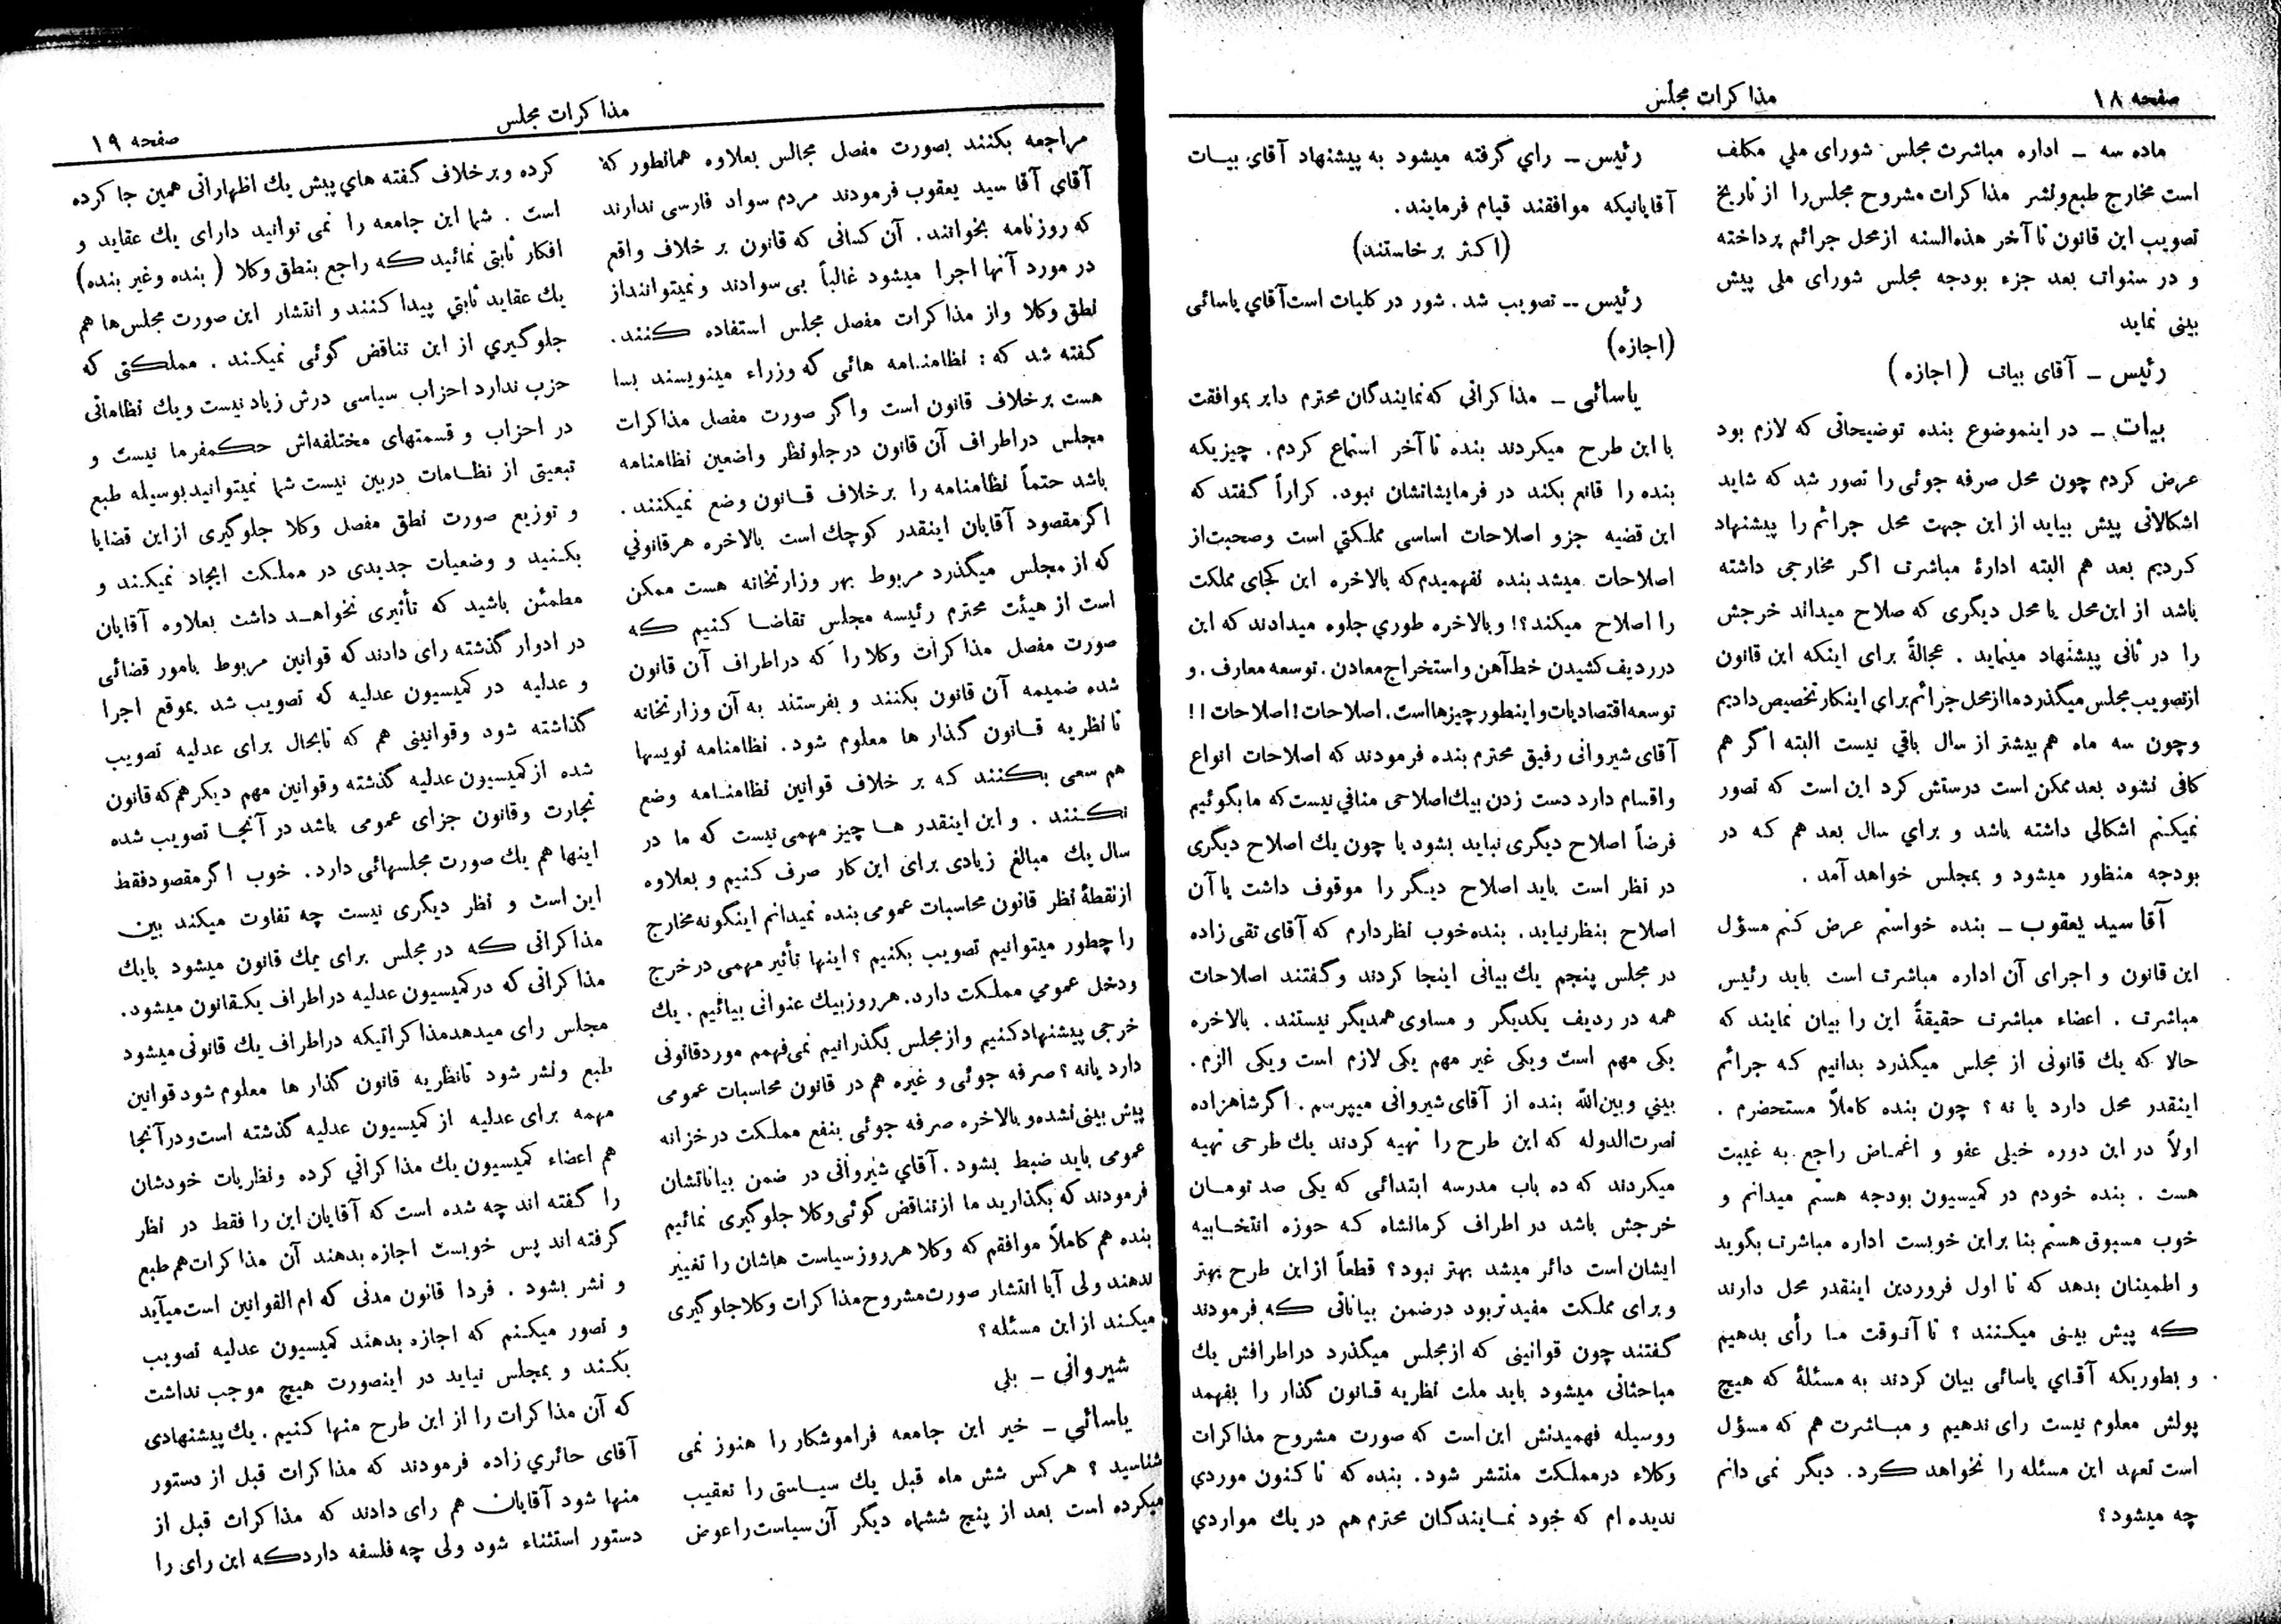 صفحه ۱۸
مذاکرات مجلس
ماده سه ــ اداره مباشرت مجلس شورای ملي مكلف
است مخارج طبع و نشر مذاکرات مشروح مجلس را از تاریخ
تصویب این قانون تا آخر هذه السنه از محل جرائم پرداخته
و در سنوات بعد جزء بودجه مجلس شورای ملی پیش
بینی نماید
رئیس ــ آقای بیات (اجازه)
بیات ــ در اینموضوع بنده توضیحاتی که لازم بود
عرض کردم چون محل صرفه جوئی را تصور شد که شاید
اشکالاتی پیش بیاید از این جهت محل جرائم را پیشنهاد
کردیم بعد هم البته ادارهٔ مباشرت اگر مخارجی داشته
باشد از این محل یا محل دیگری که صلاح میداند خرجش
را در ثانی پیشنهاد مینماید . عجالةً برای اینکه این قانون
از تصویب مجلس میگذرد ما از محل جرائم برای اینکار تخصیص دادیم
و چون سه ماه هم بیشتر از سال باقي نیست البته اگر هم
کافی نشود بعد ممکن است درستش کرد این است که تصور
نمیکنم اشکالی داشته باشد و براي سال بعد هم که در
بودجه منظور میشود و بمجلس خواهد آمد .
آقا سید یعقوب ــ بنده خواستم عرض کنم مسؤل
این قانون و اجرای آن اداره مباشرت است باید رئیس
مباشرت . اعضاء مباشرت حقیقةً این را بیان نمایند که
حالا که یك قانونی از مجلس میگذرد بدانیم که جرائم
اینقدر محل دارد یا نه ؟ چون بنده کاملاً مستحضرم .
اولاً در این دوره خیلی عفو و اغماض راجع به غیبت
هست . بنده خودم در کمیسیون بودجه هستم میدانم و
خوب مسبوق هستم بنا بر این خوبست اداره مباشرت بگوید
و اطمینان بدهد که تا اول فروردین اینقدر محل دارند
که پیش بینی میکنند ؟ تا آنوقت ما رأی بدهیم
و بطوریکه آقاي یاسائی بیان کردند به مسئلهٔ که هیچ
پولش معلوم نیست رای ندهیم و مباشرت هم که مسؤل
است تعهد این مسئله را نخواهد کرد. دیگر نمی دانم
چه میشود ؟
رئیس ــ راي گرفته میشود به پیشنهاد آقاي بیات
آقایانیکه موافقند قیام فرمایند.
(اکثر برخاستند)
رئیس ــ تصویب شد . شور در کلیات است آقاي یاسائی
(اجازه)
یاسائی ــ مذاکراتي که نمایندگان محترم دایر بموافقت
با این طرح میکردند بنده تا آخر استماع کردم. چیزیکه
بنده را قانع بکند در فرمایشاتشان نبود. کراراً گفتند که
این قضیه جزو اصلاحات اساسی مملکتي است و صحبت از
اصلاحات میشد بنده نفهمیدم که بالاخره این کجای مملکت
را اصلاح میکند؟! و بالاخره طوري جلوه میدادند که این
در ردیف کشیدن خط آهن و استخراج معادن . توسعه معارف . و
توسعه اقتصادیات و اینطور چیزها است. اصلاحات! اصلاحات!!
آقای شیروانی رفیق محترم بنده فرمودند که اصلاحات انواع
و اقسام دارد دست زدن بیك اصلاحی منافي نیست که ما بگوئیم
فرضاً اصلاح دیگری نباید بشود یا چون یك اصلاح دیگری
در نظر است باید اصلاح دیگر را موقوف داشت یا آن
اصلاح بنظر نیاید. بنده خوب نظر دارم که آقای تقی زاده
در مجلس پنجم یك بیانی اینجا کردند و گفتند اصلاحات
همه در ردیف یکدیگر و مساوی همدیگر نیستند. بالاخره
یکی مهم است و یکی غیر مهم یکی لازم است و یکی الزم .
بیني و بین الله بنده از آقای شیروانی میپرسم . اگر شاهزاده
نصرت الدوله که این طرح را تهیه کردند یك طرحی تهیه
میکردند که ده باب مدرسه ابتدائی که یکی صد تومان
خرجش باشد در اطراف کرمانشاه که حوزه انتخابیه
ایشان است دائر میشد بهتر نبود؟ قطعاً از این طرح بهتر
و برای مملکت مفیدتر بود در ضمن بیاناتی که فرمودند
گفتند چون قوانینی که از مجلس میگذرد در اطرافش یك
مباحثاتی میشود باید ملت نظریه قانون گذار را بفهمد
و وسیله فهمیدنش این است که صورت مشروح مذاکرات
وکلاء در مملکت منتشر شود. بنده که تا کنون موردي
ندیده ام که خود نمایندگان محترم هم در یك مواردي
مذاکرات مجلس
صفحه ۱۹
مراجعه بکنند بصورت مفصل مجالس بعلاوه همانطور که
آقای آقا سید یعقوب فرمودند مردم سواد فارسی ندارند
که روزنامه بخوانند . آن کسانی که قانون بر خلاف واقع
در مورد آنها اجرا میشود غالباً بی سوادند و نمیتوانند از
نطق وکلا و از مذاکرات مفصل مجلس استفاده کنند .
گفته شد که : نظامنامه هائی که وزراء مینویسند بسا
هست بر خلاف قانون است و اگر صورت مفصل مذاکرات
مجلس در اطراف آن قانون در جلو نظر واضعین نظامنامه
باشد حتماً نظامنامه را بر خلاف قانون وضع نمیکنند .
اگر مقصود آقایان اینقدر کوچك است بالاخره هر قانوني
که از مجلس میگذرد مربوط بهر وزارتخانه هست ممکن
است از هیئت محترم رئیسه مجلس تقاضا کنیم که
صورت مفصل مذاکرات وکلا را که در اطراف آن قانون
شده ضمیمه آن قانون بکنند و بفرستند به آن وزارتخانه
تا نظریه قانون گذار ها معلوم شود. نظامنامه نویسها
هم سعی بکنند که بر خلاف قوانین نظامنامه وضع
نکنند . و این اینقدر ها چیز مهمی نیست که ما در
سال یك مبالغ زیادی برای این کار صرف کنیم و بعلاوه
از نقطهٔ نظر قانون محاسبات عمومی بنده نمیدانم اینگونه مخارج
را چطور میتوانیم تصویب بکنیم ؟ اینها تأثیر مهمی در خرج
و دخل عمومي مملکت دارد. هر روز بیك عنوانی بیائیم . یك
خرجی پیشنهاد کنیم و از مجلس بگذرانیم نمی فهمم مورد قانونی
دارد یا نه ؟ صرفه جوئی و غیره هم در قانون محاسبات عمومی
پیش بینی نشده و بالاخره صرفه جوئی بنفع مملکت در خزانه
عمومی باید ضبط بشود . آقاي شیروانی در ضمن بیاناتشان
فرمودند که بگذارید ما از تناقض گوئی وکلا جلوگیری نمائیم
بنده هم کاملاً موافقم که وکلا هر روز سیاست هاشان را تغییر
ندهند ولی آیا انتشار صورت مشروح مذاکرات وکلا جلوگیری
میکند از این مسئله ؟
شیروانی ــ بلی
یاسائي ــ خیر این جامعه فراموشکار را هنوز نمی
شناسید ؟ هر کس شش ماه قبل یك سیاستی را تعقیب
میکرده است بعد از پنج ششماه دیگر آن سیاست را عوض
کرده و بر خلاف گفته هاي پیش یك اظهاراتی همین جا کرده
است . شما این جامعه را نمی توانید دارای یك عقاید و
افکار ثابتی نمائید که راجع بنطق وکلا (بنده و غیر بنده)
یك عقاید ثابتي پیدا کنند و انتشار این صورت مجلس ها هم
جلوگیري از این تناقض گوئی نمیکند . مملکتی که
حزب ندارد احزاب سیاسی درش زیاد نیست و یك نظاماتی
در احزاب و قسمتهای مختلفه اش حکمفرما نیست و
تبعیتی از نظامات در بین نیست شما نمیتوانید بوسیله طبع
و توزیع صورت نطق مفصل وکلا جلوگیری از این قضایا
بکنید و وضعیات جدیدی در مملکت ایجاد نمیکند و
مطمئن باشید که تأثیری نخواهد داشت بعلاوه آقایان
در ادوار گذشته رای دادند که قوانین مربوط بامور قضائی
و عدلیه در کمیسیون عدلیه که تصویب شد بموقع اجرا
گذاشته شود و قوانینی هم که تابحال برای عدلیه تصویب
شده از کمیسیون عدلیه گذشته و قوانین مهم دیگر هم که قانون
تجارت و قانون جزای عمومی باشد در آنجا تصویب شده
اینها هم یك صورت مجلسهائی دارد. خوب اگر مقصود فقط
این است و نظر دیگری نیست چه تفاوت میکند بین
مذاکراتی که در مجلس برای یك قانون میشود با یك
مذاکراتی که در کمیسیون عدلیه در اطراف یکقانون میشود.
مجلس رای میدهد مذاکراتیکه در اطراف یك قانونی میشود
طبع و نشر شود تا نظریه قانون گذار ها معلوم شود قوانین
مهمه برای عدلیه از کمیسیون عدلیه گذشته است و در آنجا
هم اعضاء کمیسیون یك مذاکراتي کرده و نظریات خودشان
را گفته اند چه شده است که آقایان این را فقط در نظر
گرفته اند پس خوبست اجازه بدهند آن مذاکرات هم طبع
و نشر بشود . فردا قانون مدنی که ام القوانین است میآید
و تصور میکنم که اجازه بدهند کمیسیون عدلیه تصویب
بکند و بمجلس نیاید در اینصورت هیچ موجب نداشت
که آن مذاکرات را از این طرح منها کنیم . یك پیشنهادی
آقای حائري زاده فرمودند که مذاکرات قبل از دستور
منها شود آقایان هم رای دادند که مذاکرات قبل از
دستور استثناء شود ولی چه فلسفه دارد که این رای را